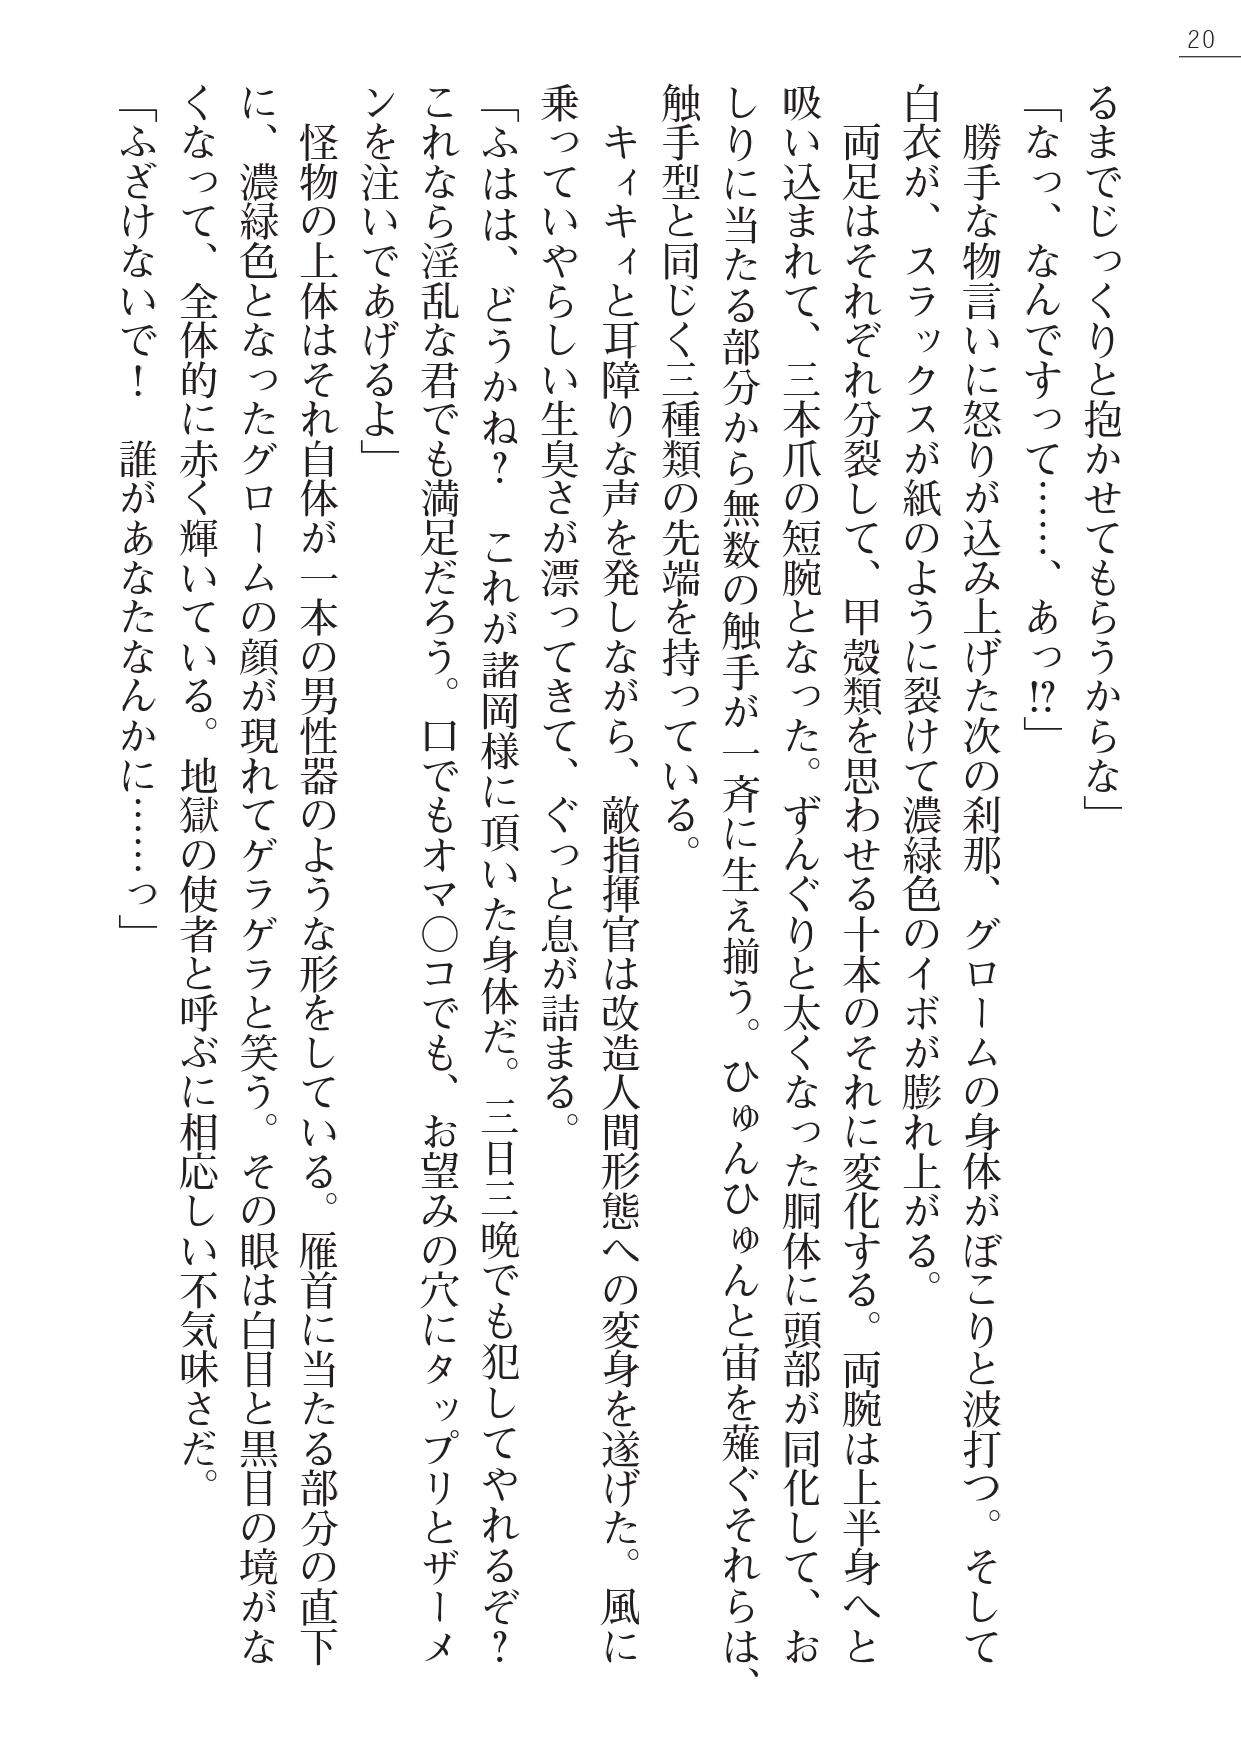 20
るまでじっくりと抱かせてもらうからな」
「なっ、なんですって……、あっ!?」
　勝手な物言いに怒りが込み上げた次の刹那、グロームの身体がぼこりと波打つ。そして
白衣が、スラックスが紙のように裂けて濃緑色のイボが膨れ上がる。
　両足はそれぞれ分裂して、甲殻類を思わせる十本のそれに変化する。両腕は上半身へと
吸い込まれて、三本爪の短腕となった。ずんぐりと太くなった胴体に頭部が同化して、お
しりに当たる部分から無数の触手が一斉に生え揃う。ひゅんひゅんと宙を薙ぐそれらは、
触手型と同じく三種類の先端を持っている。
　キィキィと耳障りな声を発しながら、敵指揮官は改造人間形態への変身を遂げた。風に
乗っていやらしい生臭さが漂ってきて、ぐっと息が詰まる。
「ふはは、どうかね？　これが諸岡様に頂いた身体だ。三日三晩でも犯してやれるぞ？
これなら淫乱な君でも満足だろう。口でもオマ〇コでも、お望みの穴にタップリとザーメ
ンを注いであげるよ」
　怪物の上体はそれ自体が一本の男性器のような形をしている。雁首に当たる部分の直下
に、濃緑色となったグロームの顔が現れてゲラゲラと笑う。その眼は白目と黒目の境がな
くなって、全体的に赤く輝いている。地獄の使者と呼ぶに相応しい不気味さだ。
「ふざけないで！　誰があなたなんかに……っ」